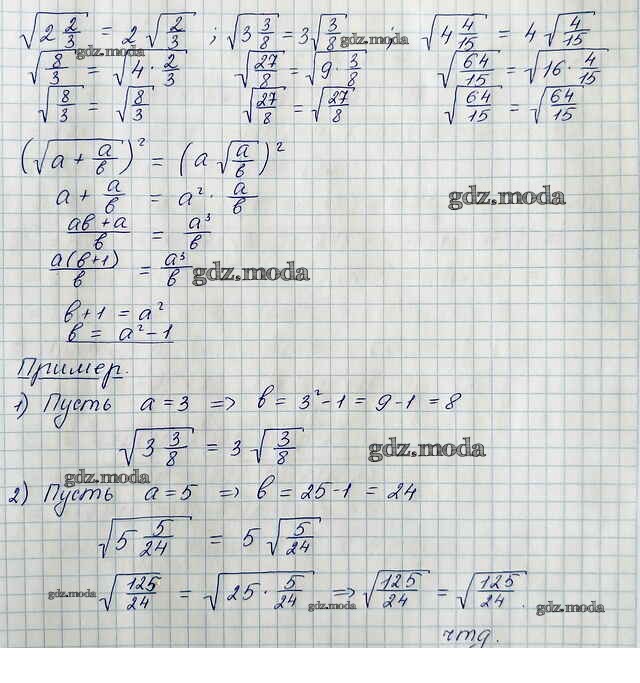 √(2 2/3) = 2 √(2/3) ; √(3 3/8) = 3 √(3/8) ; √(4 4/15) = 4 √(4/15)
gdz.moda gdz.moda
√(8/3) = √(4 · 2/3) √(27/8) = √(9 · 3/8) √(64/15) = √(16 · 4/15)
√(8/3) = √(8/3) √(27/8) = √(27/8) √(64/15) = √(64/15)
(√(a + a/в))² = (a √(a/в))²
a + a/в = a² · a/в
gdz.moda
(aв + a)/в = a³/в
a(в+1)/в = a³/в
gdz.moda
в+1 = a²
в = a² − 1
Пример.
1) Пусть a = 3 => в = 3² − 1 = 9 − 1 = 8
√(3 3/8) = 3 √(3/8)
gdz.moda
gdz.moda
2) Пусть a = 5 => в = 25 − 1 = 24
√(5 5/24) = 5 √(5/24)
√(125/24) = √(25 · 5/24) => √(125/24) = √(125/24).
gdz.moda gdz.moda gdz.moda
чтд.